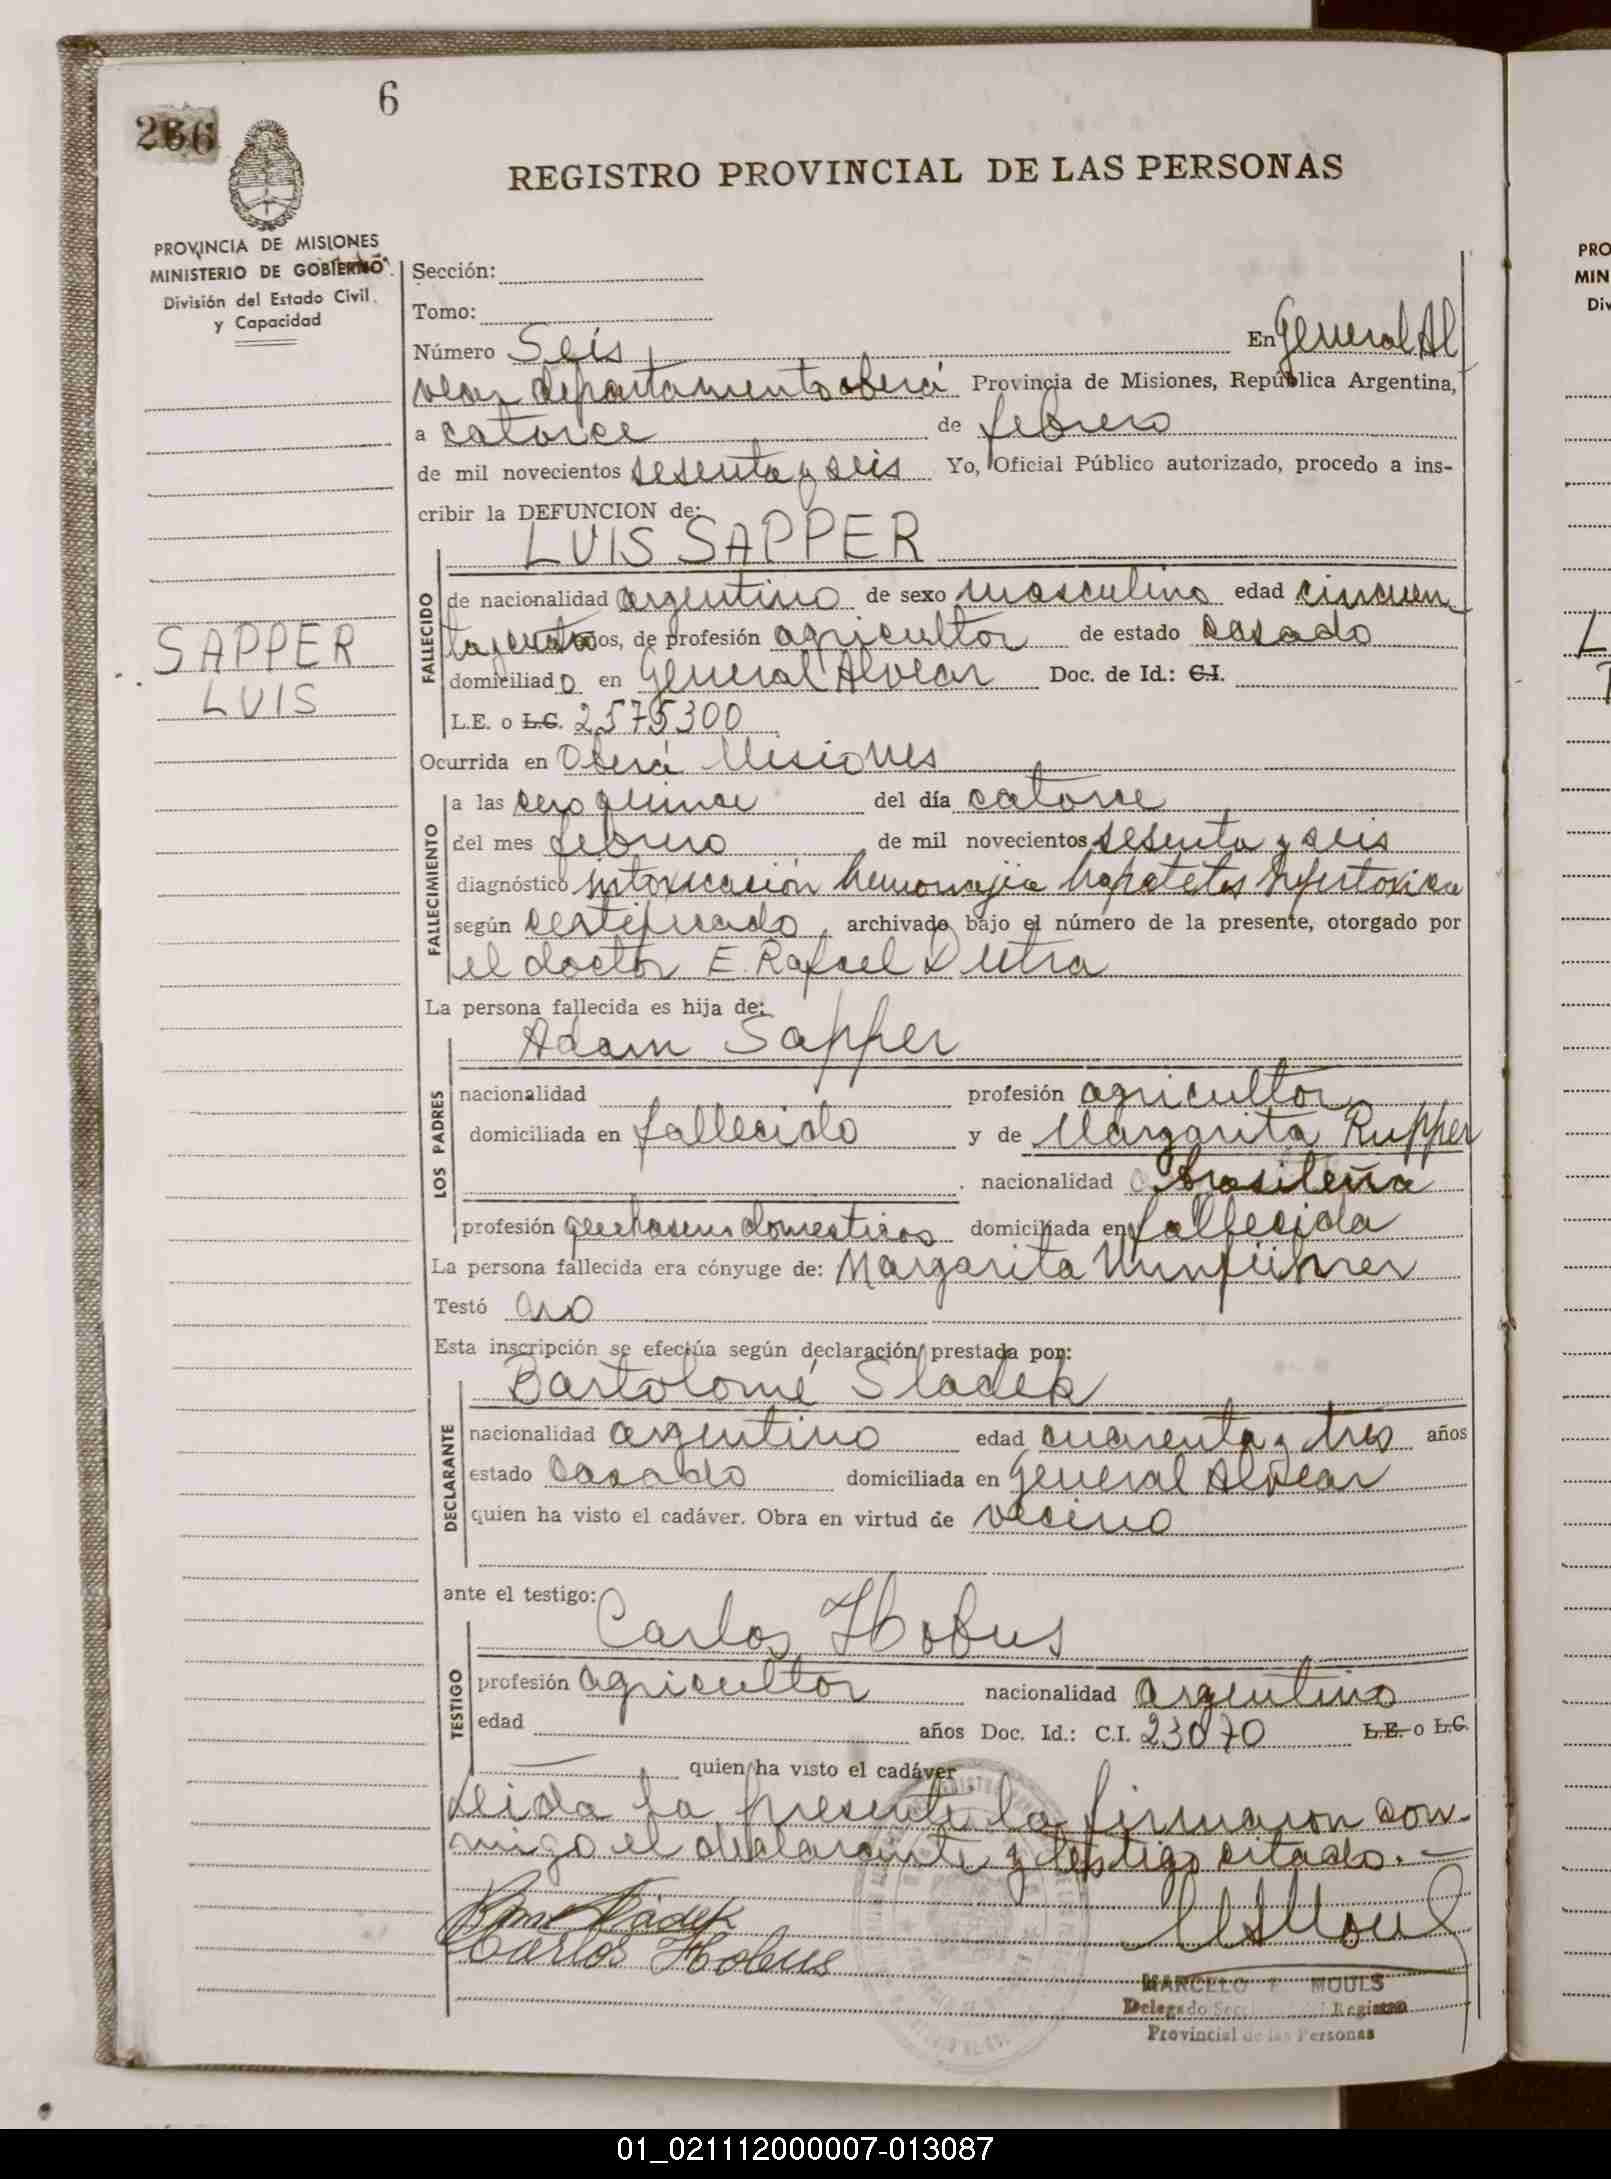 6
266
REGISTRO PROVINCIAL DE LAS PERSONAS
PROVINCIA DE MISIONES
MINISTERIO DE GOBIERNO
División del Estado Civil
y Capacidad
SAPPER
LUIS
Sección:
Tomo:
Número Seis En General Al
vear departamento oberá Provincia de Misiones, República Argentina,
a catorce de febrero
de mil novecientos sesenta y seis Yo, Oficial Público autorizado, procedo a ins-
cribir la DEFUNCION de:
LUIS SAPPER
FALLECIDO
de nacionalidad argentino de sexo masculino edad cincuen
ta años, de profesión agricultor de estado casado
domiciliado en General Alvear Doc. de Id.: C.I.
L.E. o L.C. 2575300
Ocurrida en Oberá Misiones
FALLECIMIENTO
a las cero quince del día catorce
del mes febrero de mil novecientos sesenta y seis
diagnóstico intoxicación hemorrajia
según certificado, archivado bajo el número de la presente, otorgado por
el doctor E. Rafael Dutra
La persona fallecida es hija de:
LOS PADRES
Adam Sapper
nacionalidad profesión agricultor
domiciliada en fallecido y de Margarita Rupper
nacionalidad brasileña
profesión quehaseres domesticos domiciliada en fallecida
La persona fallecida era cónyuge de: Margarita
Testó
Esta inscripción se efectúa según declaración prestada por:
DECLARANTE
Bartolomé Sladek
nacionalidad argentino edad cuarenta y tres años
estado casado domiciliada en General Alvear
quien ha visto el cadáver. Obra en virtud de vecino
ante el testigo:
TESTIGO
Carlos Hobus
profesión agricultor nacionalidad argentino
edad años Doc. Id.: C.I. 23070 L.E. o L.C.
quien ha visto el cadáver
Leida la presente la firmaron con-
migo el declarante y testigo citado.-
Carlos Hobus
MARCELO F. MOULS
Delegado Registro
Provincial de las Personas
PRO
MIN
Div
L
01_021112000007-013087